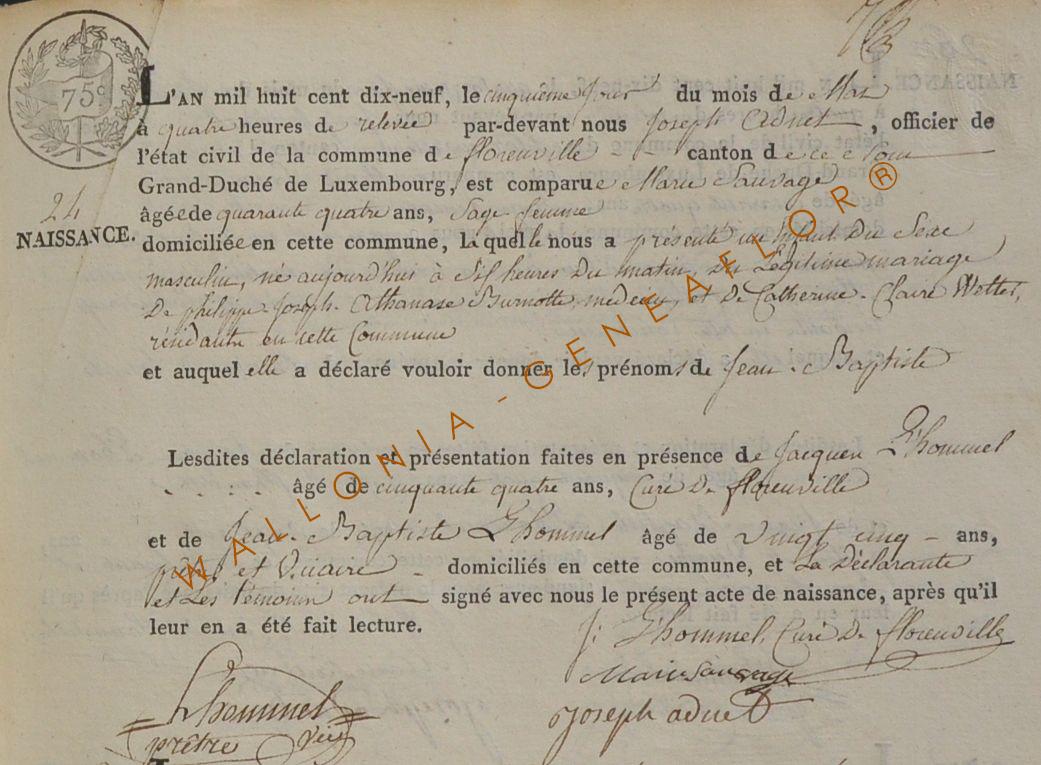 75c
L'AN mil huit cent dix-neuf, le cinquième jour du mois de Mars
à quatre heures de relevée par-devant nous Joseph Adnet, officier de
l'état civil de la commune de florenville canton de ce nom
Grand-Duché de Luxembourg, est comparue Marie Sauvage
24
NAISSANCE.
âgée de quarante quatre ans, Sage femme
domiciliée en cette commune, laquelle nous a présenté un enfant Du Sexe
masculin, né aujourd'hui à Six heures Du matin, Du Légitime mariage
De philippe-Joseph-Athanase Burnotte, médecin, et De Catherine-Claire Wottet,
résidante en cette Commune
et auquel elle a déclaré vouloir donner les prénoms de Jean-Baptiste
Lesdites déclaration et présentation faites en présence de Jacques L'hommel
âgé de cinquante quatre ans, Curé De florenville
et de Jean-Baptiste L'hommel âgé de vingt cinq ans,
prêtre et Vicaire domiciliés en cette commune, et La Déclarante
et Les témoins ont signé avec nous le présent acte de naissance, après qu'il
leur en a été fait lecture.
J: L'hommel, Curé De florenville
Marie Sauvage
Lhommel
prêtre vic
joseph adnet
WALLONIA-GENEAFLOR®